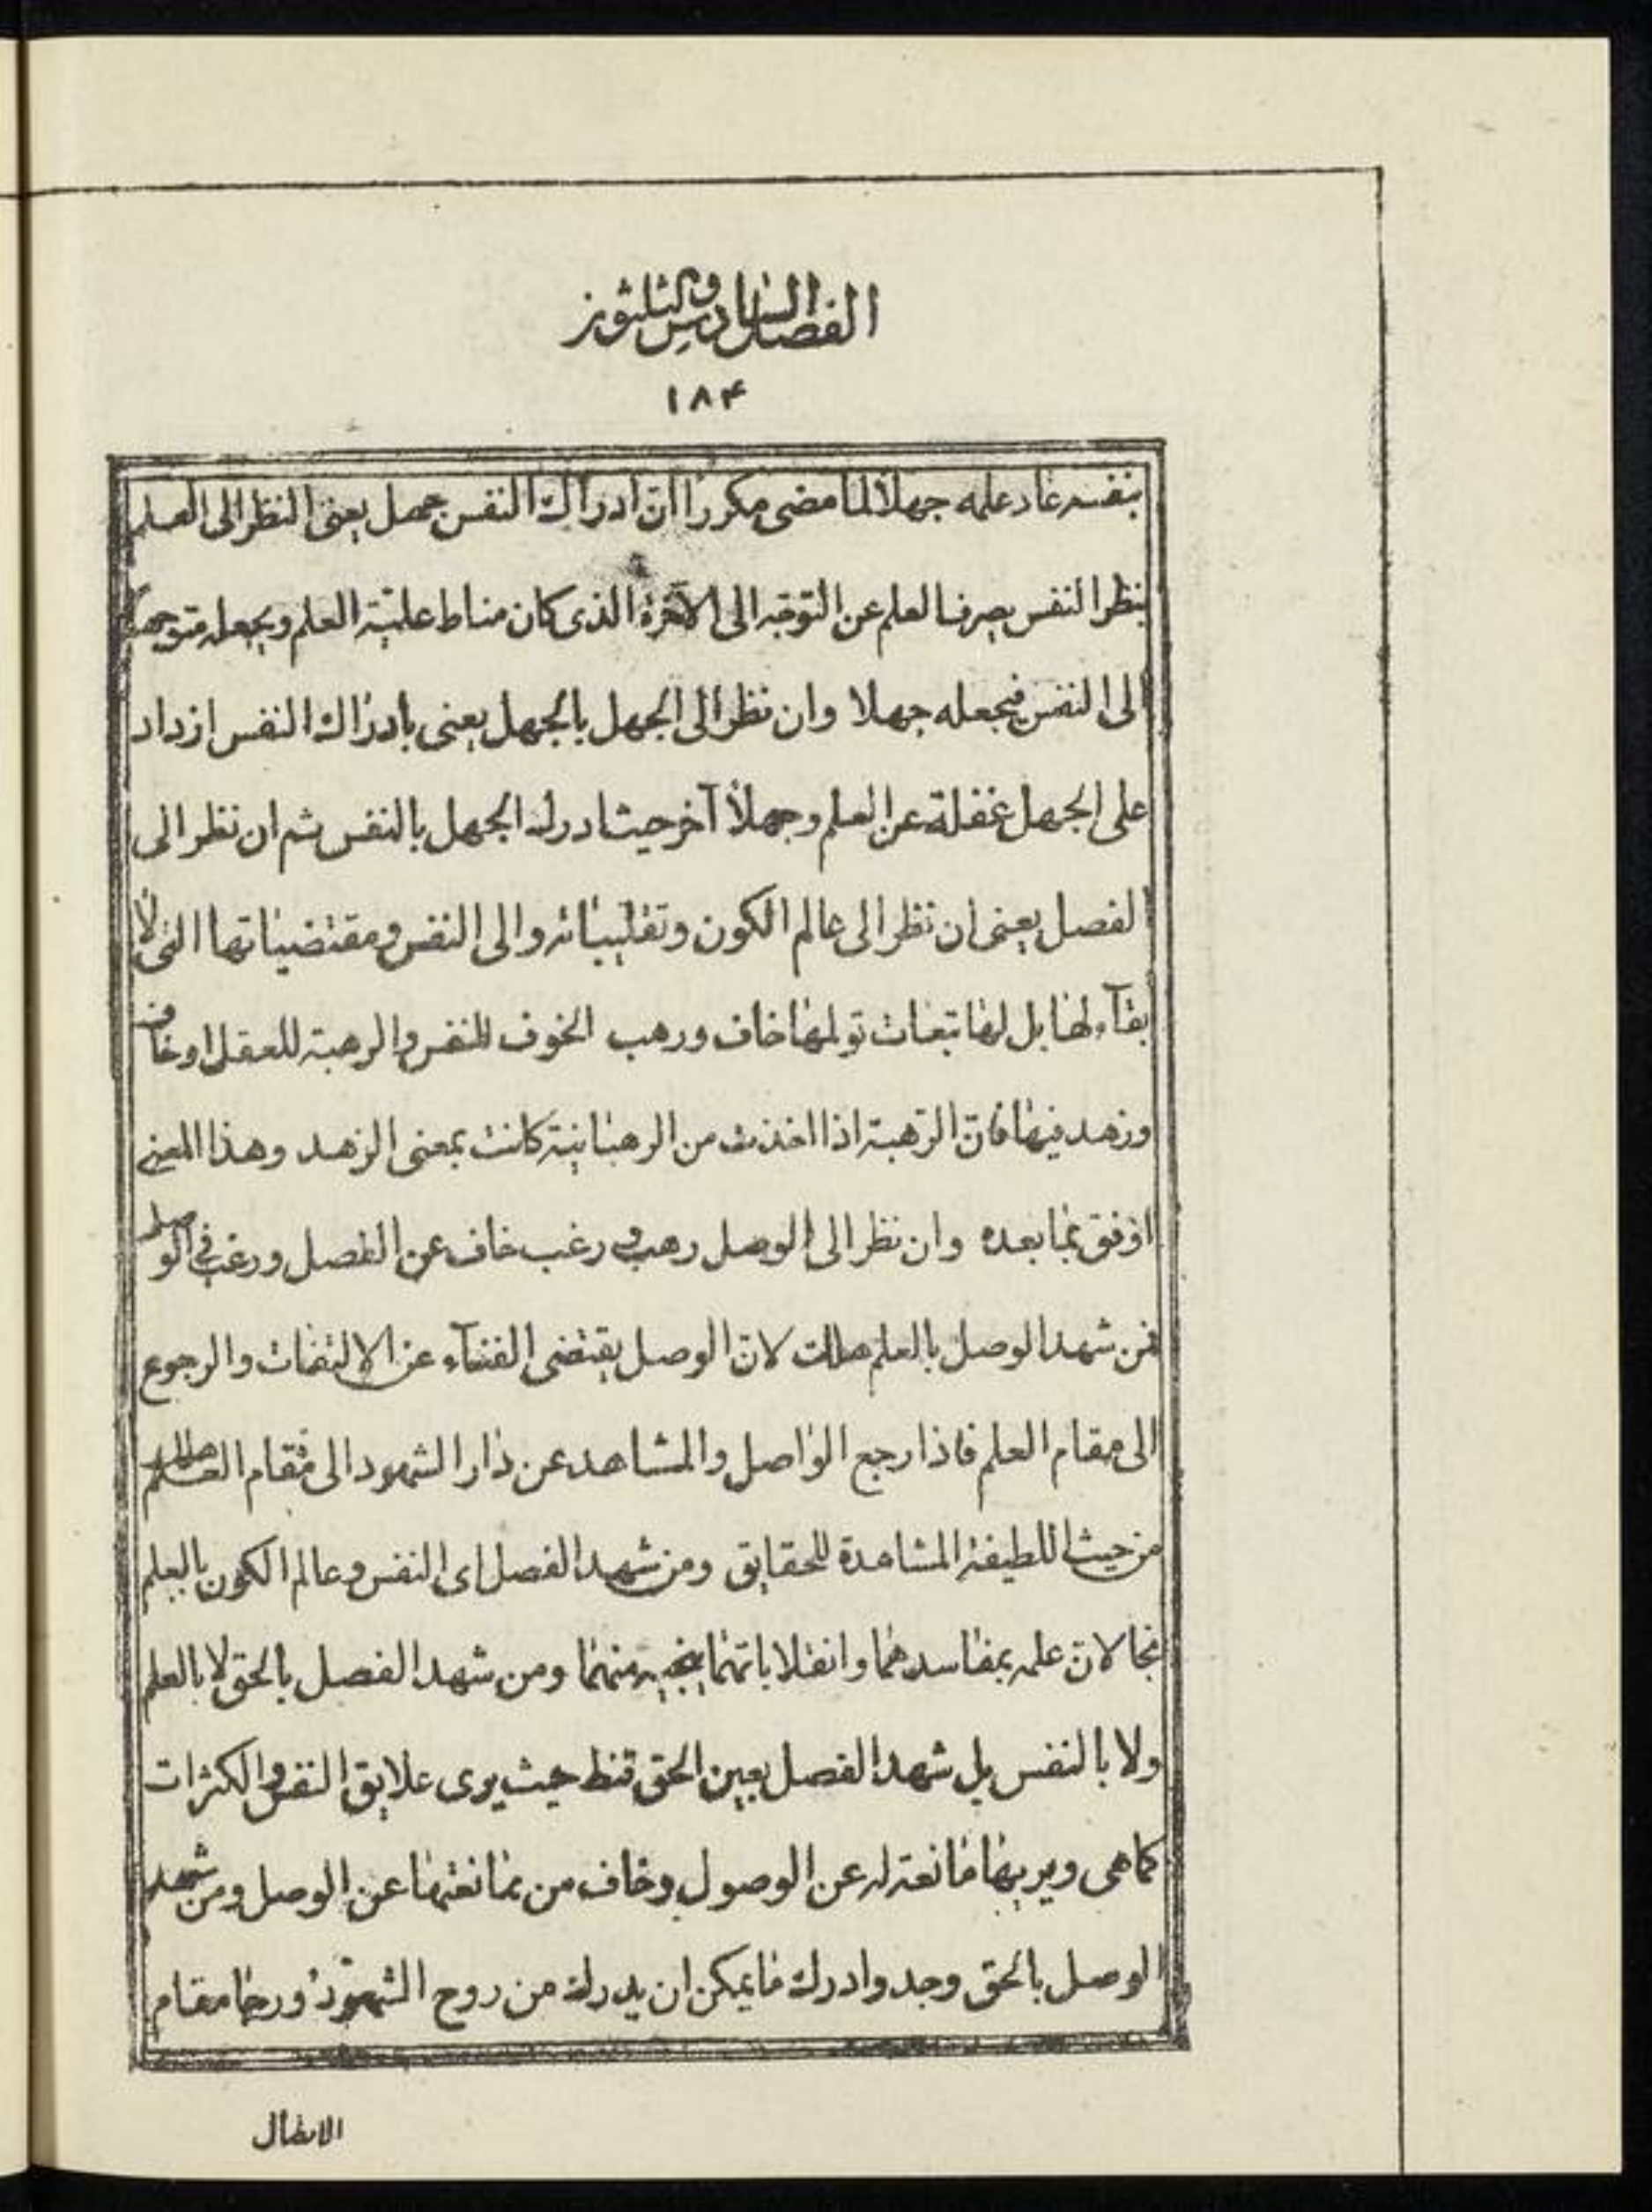 الفصل السادس والثلثون
۱۸۴
بنفسه عاد علمه جهلا لما مضى مكررا ان ادراك النفس جهل يعنى النظر الى العلم
بنظر النفس يصرف العلم عن التوجه الى الآخرة الذى كان مناط علميّة العلم ويجعله متوجها
الى النفس فيجعله جهلا وان نظر الى الجهل بالجهل يعنى بادراك النفس ازداد
على الجهل غفلة عن العلم وجهلا آخر حيث ادرك الجهل بالنفس ثم ان نظر الى
الفصل يعنى ان نظر الى عالم الكون وتقليباته والى النفس ومقتضياتها التى لا
بقآء لها بل لها تبعات تولمها خاف ورهب الخوف للنفس والرهبة للعقل او خاف
وزهد فيها فانّ الرّهبة اذا اخذت من الرهبانية كانت بمعنى الزهد وهذا المعنى
اوفق بما بعده وان نظر الى الوصل رهب و رغب خاف عن الفصل ورغب فى الوصل
فمن شهد الوصل بالعلم هلك لانّ الوصل يقتضى الفنآء عن الالتفات والرجوع
الى مقام العلم فاذا رجع الواصل والمشاهد عن دار الشهود الى مقام العلم هلك
من حيث اللطيفة المشاهدة للحقايق ومن شهد الفصل اى النفس وعالم الكون بالعلم
نجا لانّ علمه بمفاسدهما وانقلاباتهما ينجيه منهما ومن شهد الفصل بالحق لا بالعلم
ولا بالنفس بل شهد الفصل بعين الحق قنط حيث يرى علايق النفس والكثرات
كما هى ويريها مانعة له عن الوصول وخاف من ممانعتها عن الوصل ومن شهد
الوصل بالحق وجد وادرك ما يمكن ان يدرك من روح الشهود ورخا مقام
الاتصال